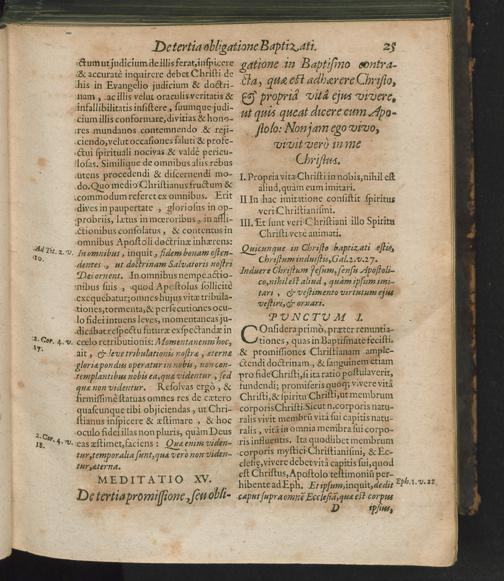 De tertia obligatione Baptizati. 25
ctum ut judicium de illis ferat, inspicere
& accuratè inquirere debet Christi de
his in Evangelio judicium & doctri-
nam, ac illis velut oraculis veritatis &
infallibilitatis insistere, suumque judi-
cium illis conformare, divitias & hono-
res mundanos contemnendo & reji-
ciendo, velut occasiones saluti & profe-
ctui spirituali nocivas & valdè pericu-
losas. Similique de omnibus aliis rebus
utens procedendi & discernendi mo-
do. Quo medio Christianus fructum &
commodum referet ex omnibus. Erit
dives in paupertate, gloriosus in op-
probriis, lætus in mœroribus, in affli-
ctionibus consolatus, & contentus in
omnibus Apostoli doctrinæ inhærens:
Ad Tit. 2. v.
10.
In omnibus, inquit, fidem bonam osten-
dentes, ut doctrinam Salvatoris nostri
Dei ornent. In omnibus nempe actio-
nibus suis, quod Apostolus sollicitè
exequebatur; omnes hujus vitæ tribula-
tiones, tormenta, & persecutiones ocu-
lo fidei intuens leves, momentaneas ju-
dicabat respectu futuræ exspectandæ in
2. Cor. 4. v.
17.
cœlo retributionis: Momentaneum hoc,
ait, & leve tribulationis nostræ, æternæ
gloriæ pondus operatur in nobis, non con-
templantibus nobis ea, quæ videntur, sed
quæ non videntur. Resolvas ergò, &
firmissimè statuas omnes res de cætero
quascunque tibi objiciendas, ut Chri-
stianus inspicere & æstimare, & hoc
oculo fidei illas non pluris, quàm Deus
2. Cor. 4. v.
18.
eas æstimet, faciens: Quæ enim viden-
tur, temporalia sunt, quæ verò non viden-
tur, æterna.
MEDITATIO XV.
De tertia promissione, seu obli-
gatione in Baptismo contra-
cta, quæ est adhærere Christo,
& propriâ vitâ ejus vivere,
ut quis queat dicere cum Apo-
stolo: Non jam ego vivo,
vivit verò in me
Christus.
I. Propria vita Christi in nobis, nihil est
aliud, quàm eum imitari.
II. In hac imitatione consistit spiritus
veri Christianismi.
III. Et sunt veri Christiani illo Spiritu
Christi verè animati.
Quicunque in Christo baptizati estis,
Christum induistis, Gal. 2. v. 27.
Induere Christum Jesum, sensu Apostoli-
co, nihil est aliud, quàm ipsum imi-
tari, & vestimento virtutum ejus
vestire, & ornari.
PUNCTUM I.
COnsidera primò, præter renuntia-
tiones, quas in Baptismate fecisti,
& promissiones Christianam ample-
ctendi doctrinam, & sanguinem etiam
pro fide Christi, si ita ratio postulaverit,
fundendi; promiseris quoq; vivere vitâ
Christi, & spiritu Christi, ut membrum
corporis Christi. Sicut n. corporis natu-
ralis vivit membrũ vitâ sui capitis natu-
ralis, vitâ in omnia membra sui corpo-
ris influentis. Ita quodlibet membrum
corporis mystici Christianismi, & Ec-
clesiæ, vivere debet vitâ capitis sui, quod
est Christus, Apostolo testimoniũ per-
hibente ad Eph. Et ipsum, inquit, dedit
Eph. 1. v. 22.
caput supra omnẽ Ecclesiã, quæ est corpus
D ipsius,